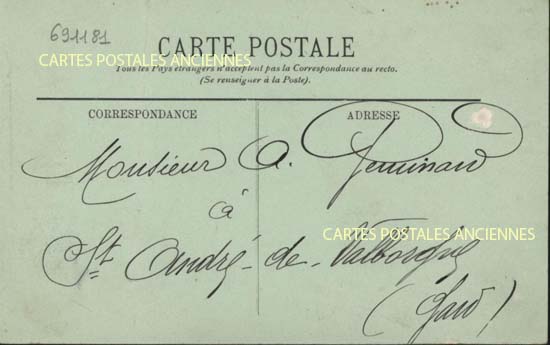 691181
CARTE POSTALE
CARTES POSTALES ANCIENNES
Tous les Pays étrangers n'acceptent pas la Correspondance au recto.
(Se renseigner à la Poste).
CORRESPONDANCE ADRESSE
Monsieur A.
à
CARTES POSTALES ANCIENNES
St André-de-Valborgne
(Gard)